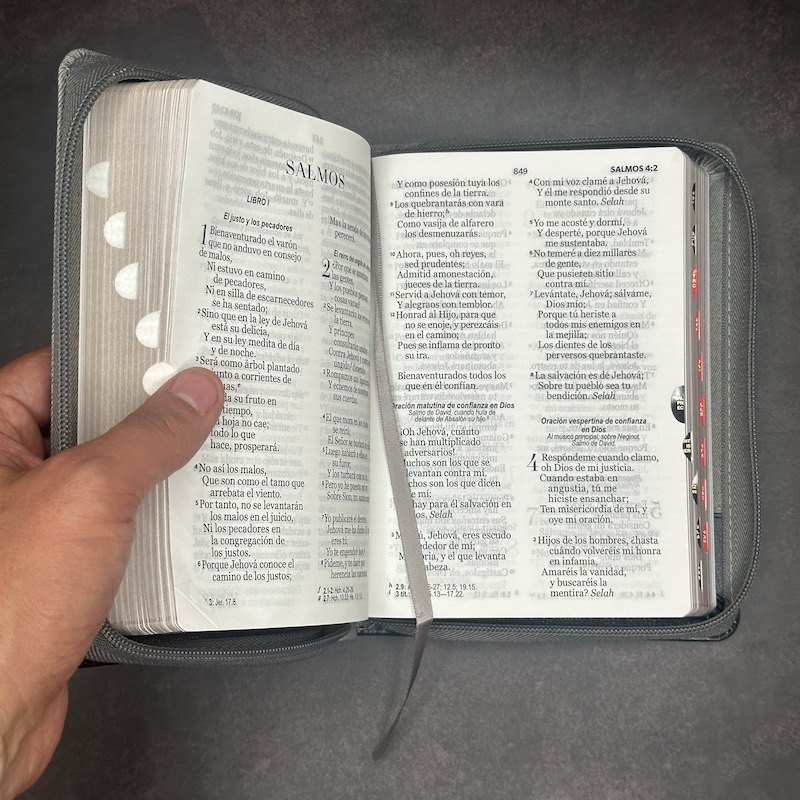 SALMOS
LIBRO I
El justo y los pecadores
1 Bienaventurado el varón
que no anduvo en consejo
de malos,
Ni estuvo en camino
de pecadores,
Ni en silla de escarnecedores
se ha sentado;
2 Sino que en la ley de Jehová
está su delicia,
Y en su ley medita de día
y de noche.
3 Será como árbol plantado
junto a corrientes de
su fruto en
tiempo,
hoja no cae;
todo lo que
hace, prosperará.
4 No así los malos,
Que son como el tamo que
arrebata el viento.
5 Por tanto, no se levantarán
los malos en el juicio,
Ni los pecadores en
la congregación de
los justos.
6 Porque Jehová conoce el
camino de los justos;
Jer. 17.8.
Mas la senda de
perecerá.
El reino del
2
las gentes,
Y los pueblos
cosas vanas?
2 Se levantarán
la tierra,
Y príncipes
consultarán
Contra Jehová
3 Rompamos
Y echemos
sus cuerdas.
4 El que mora en los
se reirá;
El Señor se burlará
5 Luego hablará a
su furor,
Y los turbará con
6 Pero yo he puesto
Sobre Sion, mi
7 Yo publicaré el
Jehová me ha dicho
eres tú;
Yo te engendré
8 Pídeme, y te daré por
herencia las
849
SALMOS 4:2
Y como posesión tuya los
confines de la tierra.
9 Los quebrantarás con vara
de hierro;
Como vasija de alfarero
los desmenuzarás.
10 Ahora, pues, oh reyes,
sed prudentes;
Admitid amonestación,
jueces de la tierra.
11 Servid a Jehová con temor,
Y alegraos con temblor.
12 Honrad al Hijo, para que
no se enoje, y perezcáis
en el camino;
Pues se inflama de pronto
su ira.
Bienaventurados todos los
que en él confían.
Oración matutina de confianza en Dios
Salmo de David, cuando huía de
delante de Absalón su hijo.
¡Oh Jehová, cuánto
se han multiplicado
adversarios!
Muchos son los que se
levantan contra mí.
son los que dicen
de mí:
hay para él salvación en
Selah
Jehová, eres escudo
alrededor de mí;
y el que levanta
cabeza.
4 Con mi voz clamé a Jehová,
Y él me respondió desde su
monte santo. Selah
5 Yo me acosté y dormí,
Y desperté, porque Jehová
me sustentaba.
6 No temeré a diez millares
de gente,
Que pusieren sitio
contra mí.
7 Levántate, Jehová; sálvame,
Dios mío;
Porque tú heriste a
todos mis enemigos en
la mejilla;
Los dientes de los
perversos quebrantaste.
8 La salvación es de Jehová;
Sobre tu pueblo sea tu
bendición. Selah
Oración vespertina de confianza
en Dios
Al músico principal; sobre Neginot.
Salmo de David.
4 Respóndeme cuando clamo,
oh Dios de mi justicia.
Cuando estaba en
angustia, tú me
hiciste ensanchar;
Ten misericordia de mí, y
oye mi oración.
2 Hijos de los hombres, ¿hasta
cuándo volveréis mi honra
en infamia,
Amaréis la vanidad,
y buscaréis la
mentira? Selah